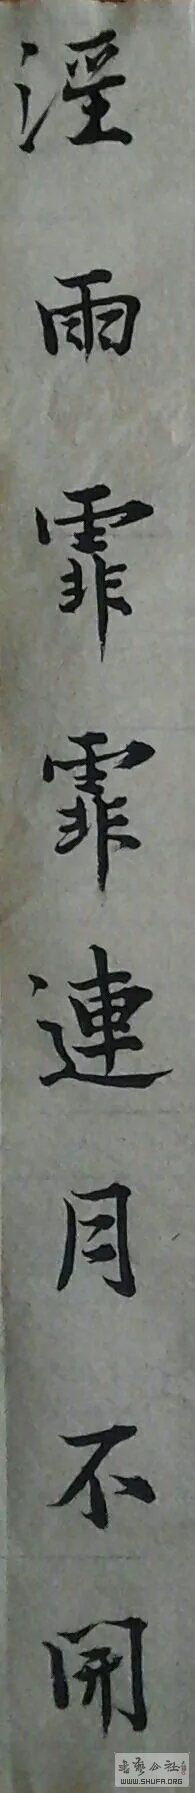 淫雨霏霏連月不開
书法公社
WWW.SHUFA.ORG